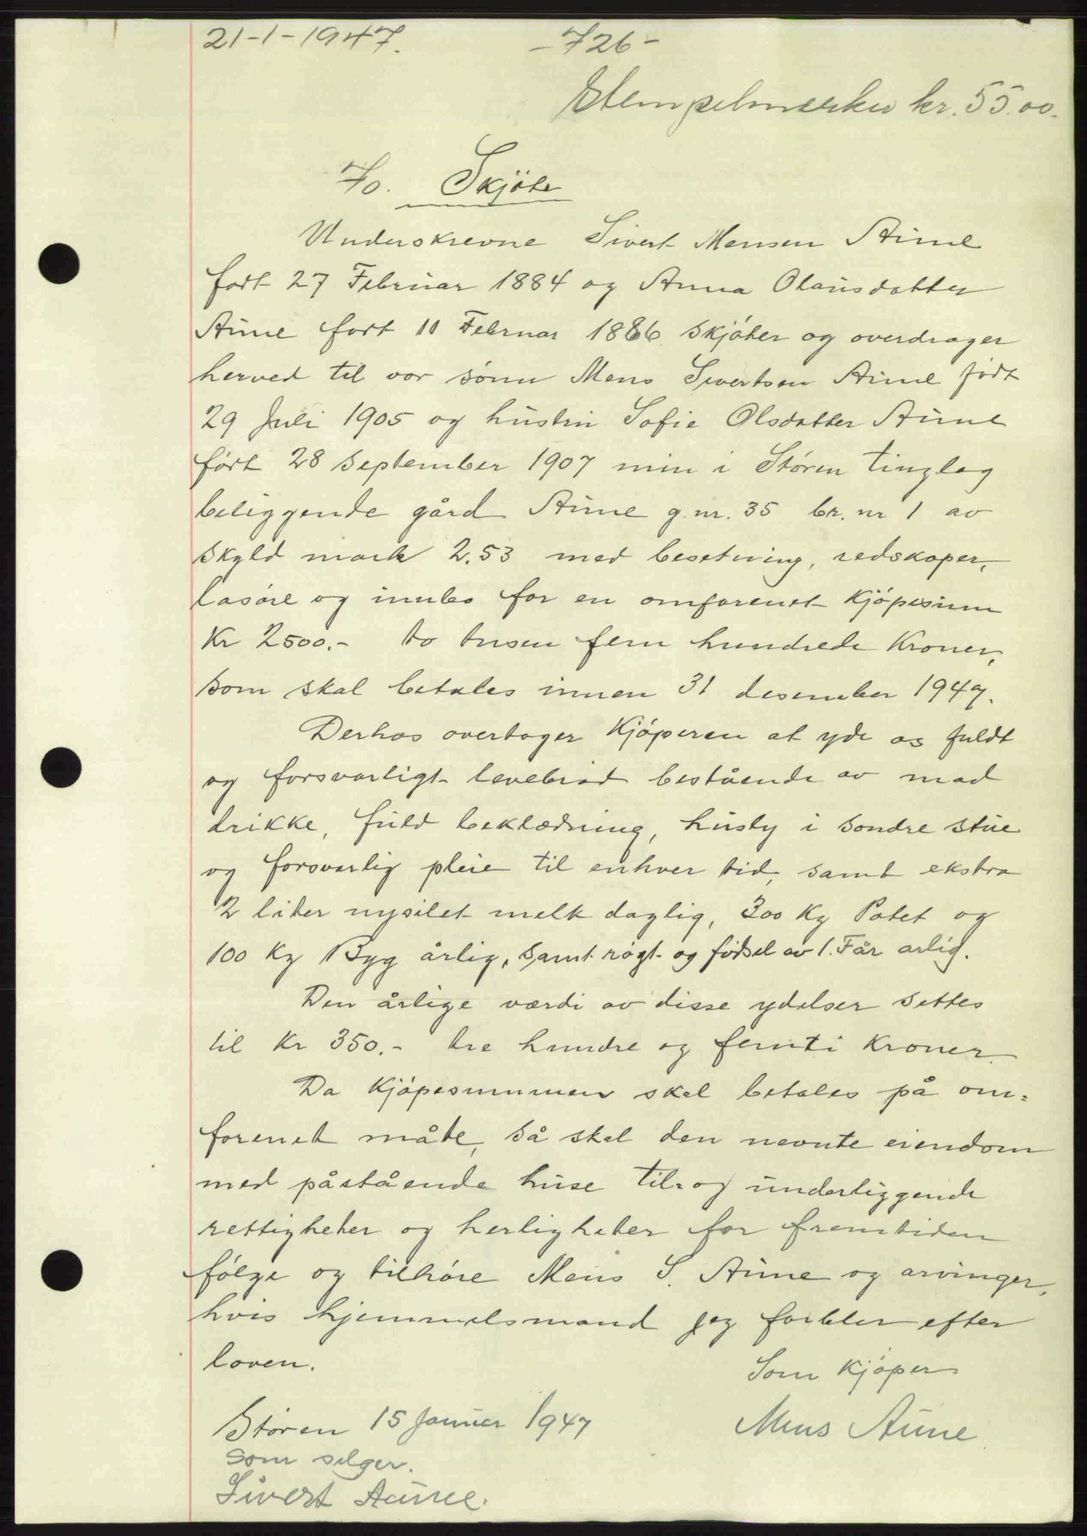 21-1-1947.
-726-
Stempelmerker kr. 55.00.
70. Skjöte
Underskrevne Sivert Mensen Aune
født 27 Februar 1884 og Anna Olausdatter
Aune født 11 Februar 1886 skjöter og overdrager
herved til vor sönn Mens Sivertsen Aune født
29 Juli 1905 og hustru Sofie Olsdatter Aune
født 28 September 1907 min i Støren tinglag
beliggende gård Aune g.nr. 35 br. nr 1 av
skyld mark 2.53 med besetning, redskaper,
løsøre og innbo for en omforenet kjöpesum
Kr 2500.- to tusen fem hundrede Kroner,
som skal betales innen 31 desember 1947.
Derhos overtager Kjöperen at yde os fuldt
og forsvarligt levebrød bestående av mad
drikke, fuld beklædning, husly i søndre stue
og forsvarlig pleie til enhver tid, samt ekstra
2 liter nysilet melk daglig, 300 Kg Potet og
100 Kg Byg årlig, samt røgt og fødsel av 1. Får årlig.
Den årlige værdi av disse ydelser settes
til Kr 350.- tre hundre og femti Kroner.
Da Kjöpesummen skal betales på om-
forenet måte, så skal den nevnte eiendom
med påstående huse til- og underliggende
rettigheter og herligheter for fremtiden
følge og tilhøre Mens S. Aune og arvinger,
hvis hjemmelsmand jeg forblir efter
loven.
Som Kjöper
Støren 15 Januar 1947
Mens Aune
Som selger.
Sivert Aune.